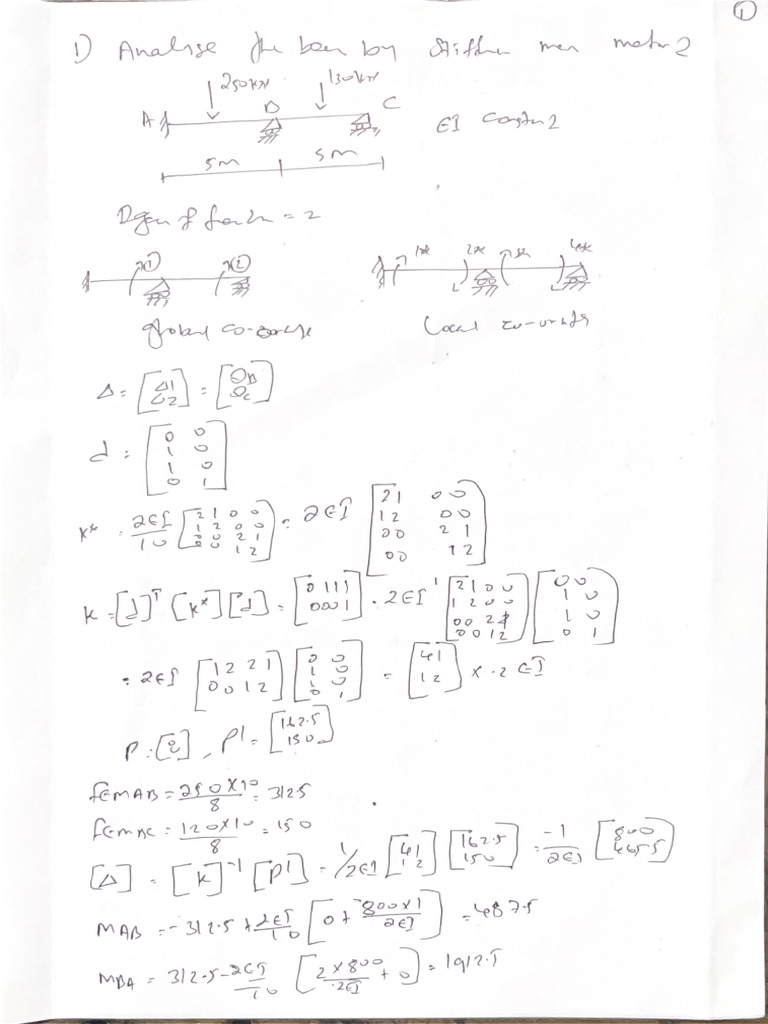 ①
1) Analyse the beam by stiffness matrix
250kN 130kN
A B C
EI constant
5m 5m
Degree of freedom = 2
① ② 1* 2* 3* 4*
global co-ordinate local co-ordinates
Δ = [Δ1; Δ2] = [θB; θC]
d = [0 0; 1 0; 1 0; 0 1]
K* = 2EI/10 [2 1 0 0; 1 2 0 0; 0 0 2 1; 0 0 1 2] = .2EI [2 1 0 0; 1 2 0 0; 0 0 2 1; 0 0 1 2]
K = [d]ᵀ [K*] [d] = [0 1 1 1; 0 0 0 1] · 2EI [2 1 0 0; 1 2 0 0; 0 0 2 1; 0 0 1 2] [0 0; 1 0; 1 0; 0 1]
= .2EI [1 2 2 1; 0 0 1 2] [0 0; 1 0; 1 0; 0 1] = [4 1; 1 2] × .2 EI
P = [0; 0], P' = [162.5; 150]
FEM AB = 250×10/8 = 312.5
FEM BC = 120×10/8 = 150
[Δ] = [K]⁻¹ [P'] = 1/.2EI [4 1; 1 2] [162.5; 150] = -1/.2EI [800; 465.5]
MAB = -312.5 + 2EI/10 [0 + -800×1/.2EI] = 487.5
MBA = 312.5 - 2EI/10 [2×800/.2EI + 0] = 1912.5